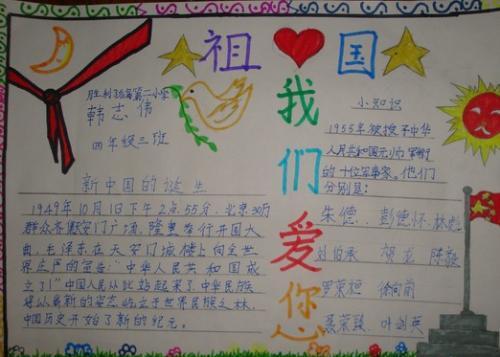 祖国
我们爱你
第二小学
韩志伟
四年级三班
新中国的诞生
1949年10月1日下午2点55分,北京30万
群众齐聚天安门广场,隆重举行开国大
典,毛泽东在天安门城楼上向全世
界庄严的宣告:"中华人民共和国成
立了!"中国人从此站起来了,中华民族
将以崭新的姿态屹立于世界民族之林,
中国历史开始了新的纪元。
小知识
1955年被授予中华
人民共和国元帅军衔
的十位军事家。他们
分别是:
朱德、彭德怀、林彪
刘伯承 贺龙 陈毅
罗荣桓 徐向前
聂荣臻、叶剑英